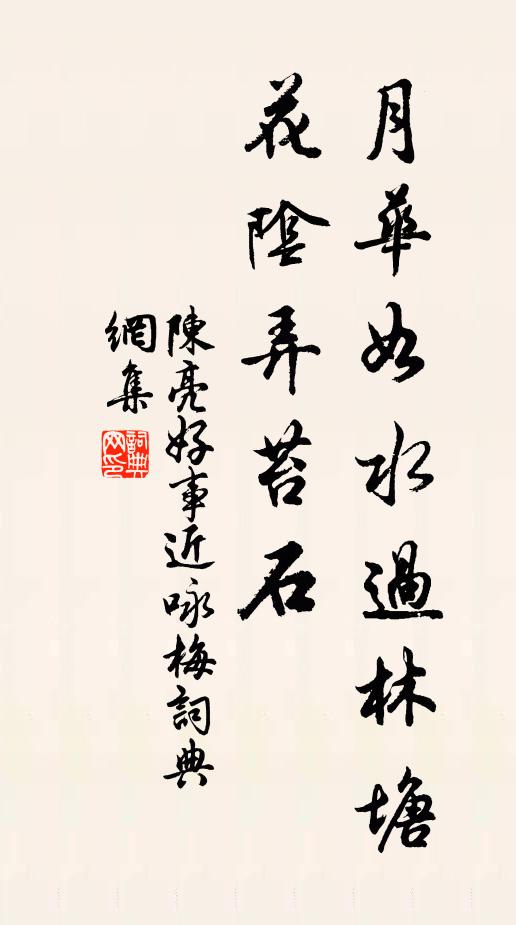 月華如水過林塘
花陰弄苔石
陳亮好事近咏梅詞典
網集
詞典網印